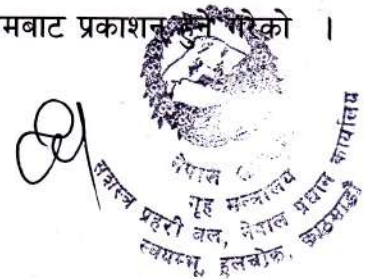 मबाट प्रकाशन हुने गरेको ।
नेपाल
गृह मन्त्रालय
सशस्त्र प्रहरी बल, नेपाल प्रधान कार्यालय
स्वयम्भू, हलचोक, काठमाडौं